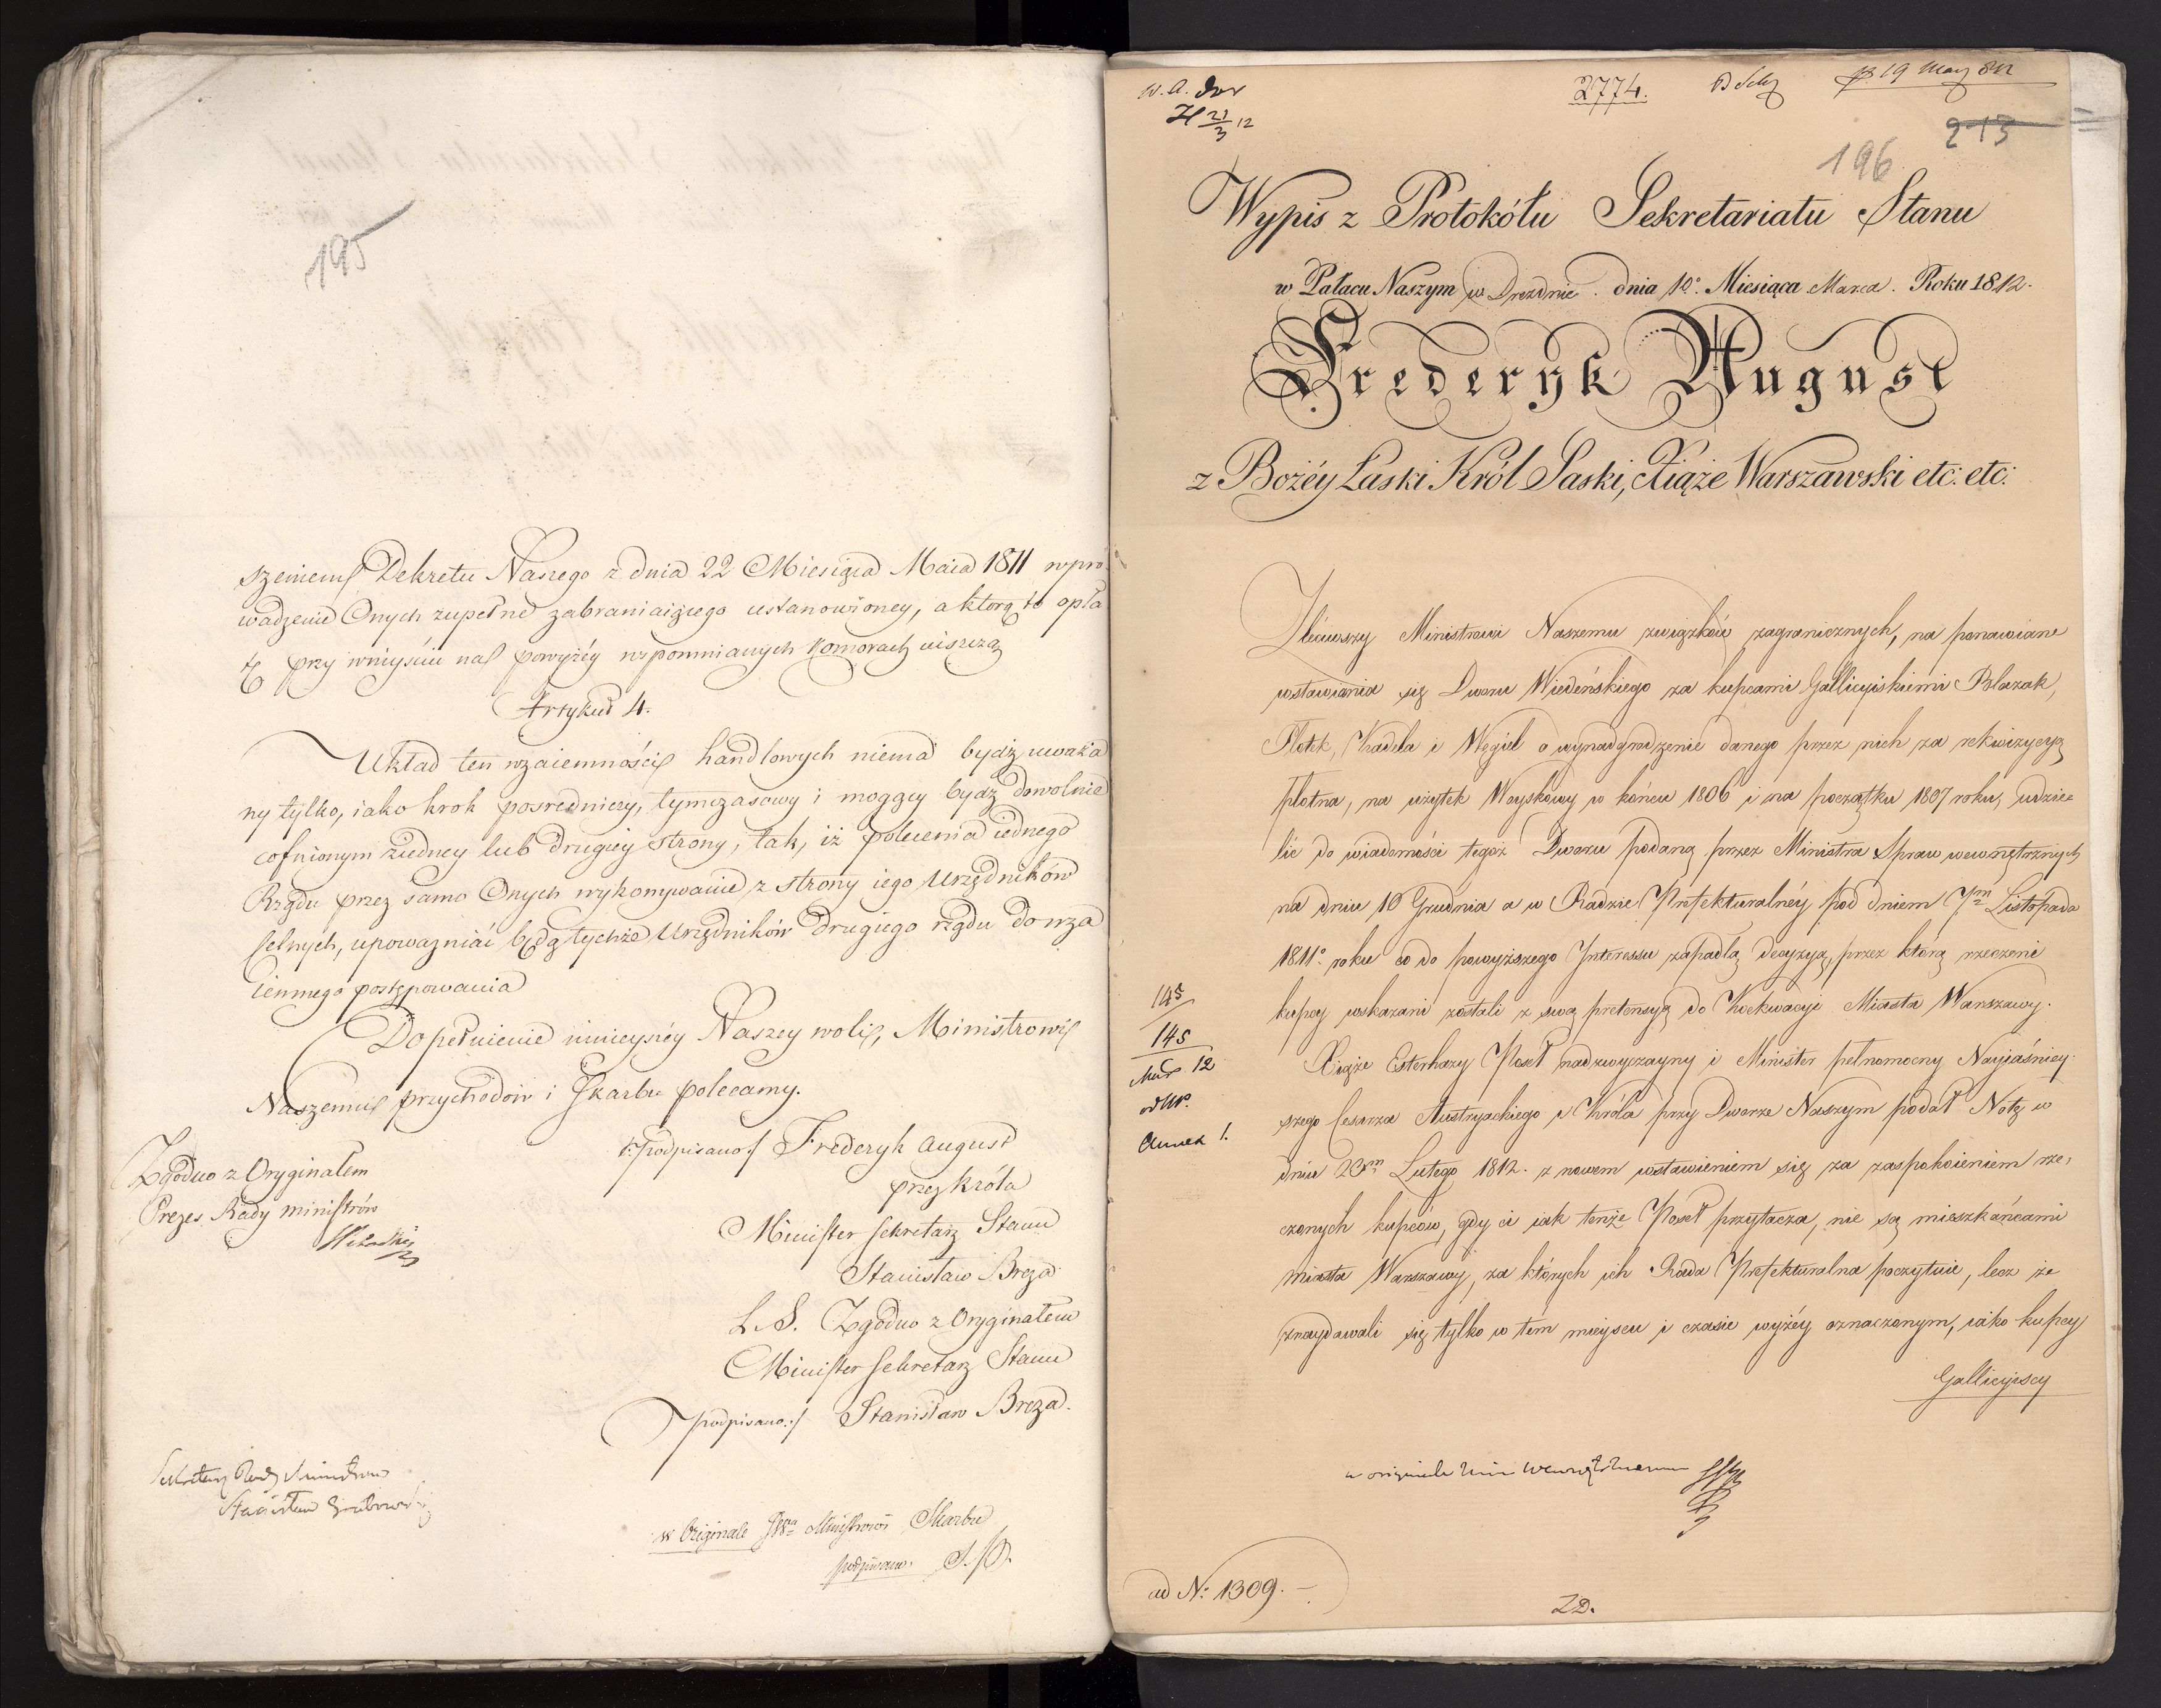 195
szeniem Dekretu Naszego z dnia 22 Miesiąca Maia 1811 wpro
wadzenie Onych zupełne zabraniaiącego ustanowioney, a którą to opła
tę przy wniyściu na powyżéy wspomnianych Komorach uiszczą
Artykuł 4.
Układ ten wzaiemności handlowych niema bydź uważa
ny tylko, iako krok posredniczy, tymczasowy i mogący bydź dowolnie
cofnionym ziedney lub drugiey strony, tak, iż polecenia iednego
Rządu przez samo Onych wykonywanie z strony iego Urzędników
celnych, upoważniać będą tychże Urzędników drugiego rządu do wza
iemnego postępowania
Dopełnienie ninieyszéy Naszey woli, Ministrowi
Naszemu przychodów i Skarbu polecamy.
podpisano/ Frederyk August
przez Króla
Minister Sekretarz Stanu
Stanisław Breza
L. S. Zgodno z Oryginałem
Minister Sekretarz Stanu
podpisano:/ Stanisław Breza.
Zgodno z Oryginałem
Prezes Rady Ministrów
Sekretarz Rady Ministrów
Stanisław Grabowski
w Originale JW Ministrowi Skarbu
podpisano.
2774.
19 May 812
213
196
Wypis z Protokółu Sekretariatu Stanu
w Pałacu Naszym w Dreznie. dnia 10º. Miesiąca Marca. Roku 1812.
Frederyk August
z Bożéy Łaski Król Saski, Xiąże Warszawski etc: etc:
Zleciwszy Ministrowi Naszemu związków zagranicznych, na ponawiane
wstawiania się Dworu Wiedeńskiego za kupcami Gallicyiskiemi Blazak,
Płotek, Kadela i Węgiel o wynadgrodzenie danego przez nich za rekwizycyą
płotna, na użytek Woyskowy w końcu 1806 i na początku 1807 roku, udzie=
lić do wiadomości tegoż Dworu podaną przez Ministra Spraw wewnętrznych
na dniu 10 Grudnia a w Radzie Prefekturalnéy pod dniem 7m Listopada
1811º roku co do powyższego Interessu zapadłą decyzyą, przez którą rzeczeni
kupcy wskazani zostali z swą pretensyą do Koekwacyi Miasta Warszawy.
Xiąże Esterhazy Poseł nadzwyczayny i Minister pełnomocny Nayiaśniey=
szego Cesarza Austryackiego i Króla przy Dworze Naszym podał Notę w
dniu 20m Lutego 1812. z nowem wstawieniem się za zaspokoieniem rze=
czonych kupców, gdy ci iak tenże Poseł przytacza, nie są mieszkańcami
Miasta Warszawy, za których ich Rada Prefekturalna poczytuie, lecz że
znaydowali się tylko w tém mieyscu i czasie wyżéy oznaczonym, iako kupcy
Gallicyiscy
145
145
Mar 12
Annex 1.
ad N: 1309.